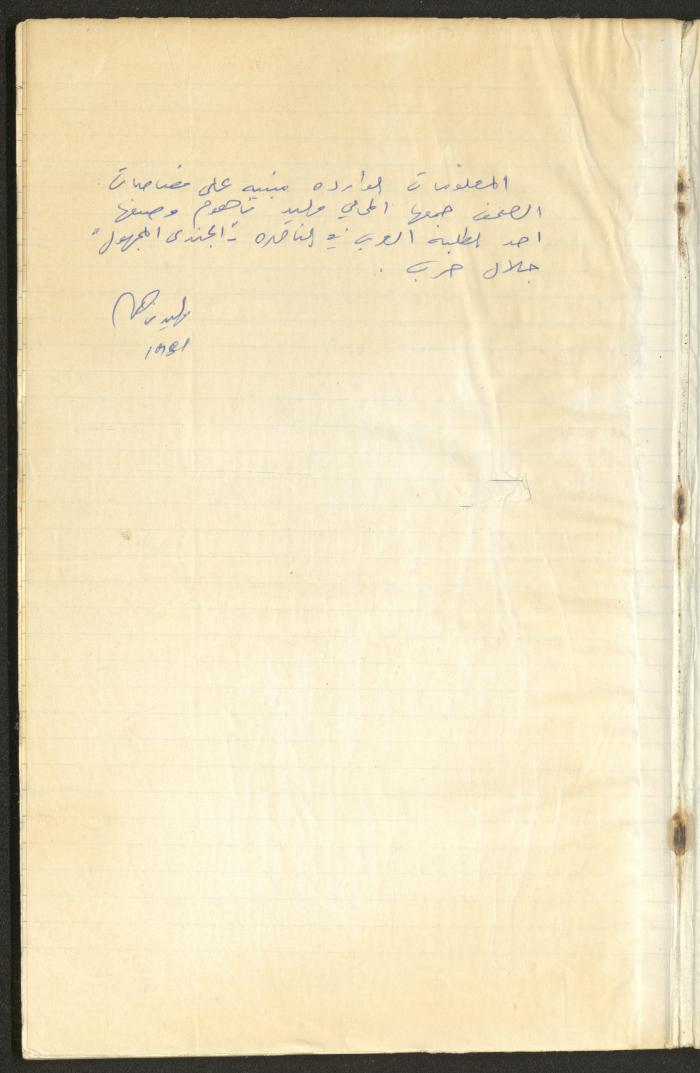 المعلومات الوارده مبنيه على قصاصات
الصحف جمعها المحامي وليد فاهوم وصنفها
احد الطلبه العرب في الناصره - "الجندي المجهول"
جلال حرب .
وليد فاهوم
1981